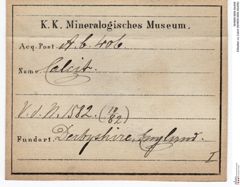 K. K. Mineralogisches Museum.
Acq. Post. A. b. 406
Name. Calcit.
V. s. N. 582. (10/82)
Fundort. Derbyshire, England.
I